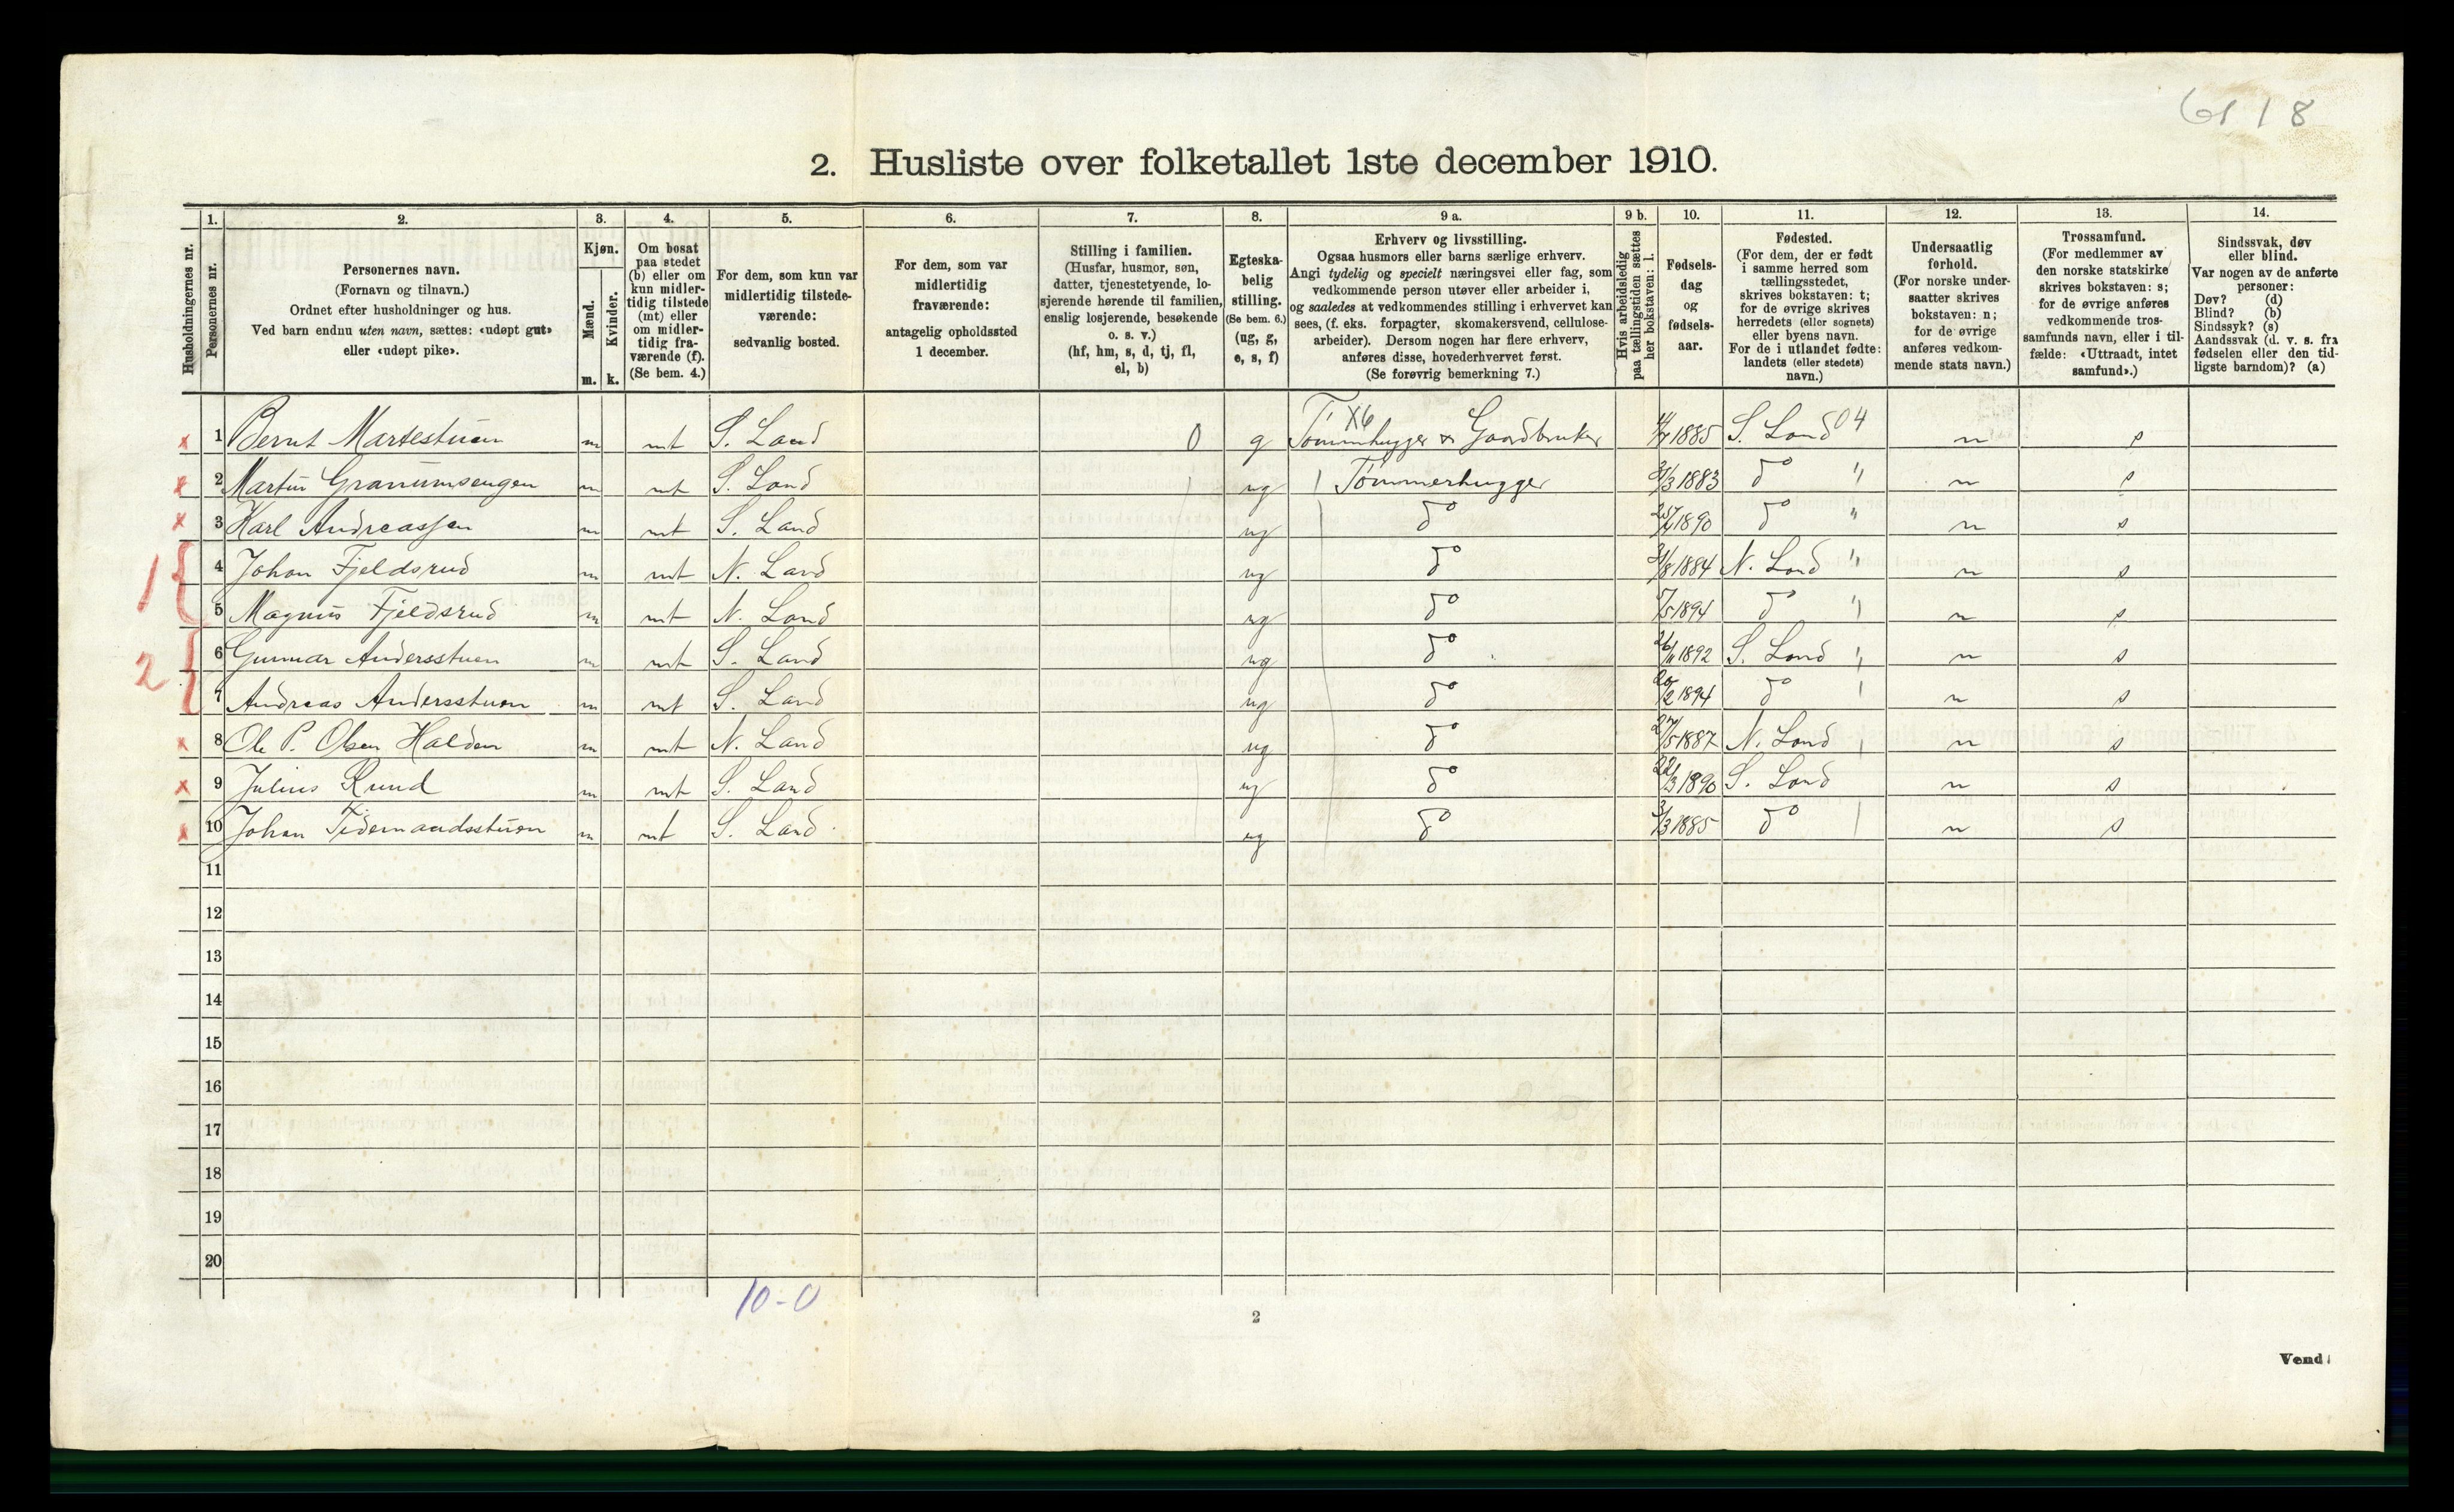 6118
2. Husliste over folketallet 1ste december 1910.
1. 2. 3. 4. 5. 6. 7. 8. 9 a. 9 b. 10. 11. 12. 13. 14.
Husholdningernes nr.
Personernes nr.
Personernes navn.
(Fornavn og tilnavn.)
Ordnet efter husholdninger og hus.
Ved barn endnu uten navn, sættes: «udøpt gut»
eller «udøpt pike».
Kjøn.
Mænd.
Kvinder.
m. k.
Om bosat
paa stedet
(b) eller om
kun midler-
tidig tilstede
(mt) eller
om midler-
tidig fra-
værende (f).
(Se bem. 4.)
For dem, som kun var
midlertidig tilstede-
værende:
sedvanlig bosted.
For dem, som var
midlertidig
fraværende:
antagelig opholdssted
1 december.
Stilling i familien.
(Husfar, husmor, søn,
datter, tjenestetyende, lo-
sjerende hørende til familien,
enslig losjerende, besøkende
o. s. v.)
(hf, hm, s, d, tj, fl,
el, b)
Egteska-
belig
stilling.
(Se bem. 6.)
(ug, g,
e, s, f)
Erhverv og livsstilling.
Ogsaa husmors eller barns særlige erhverv.
Angi tydelig og specielt næringsvei eller fag, som
vedkommende person utøver eller arbeider i,
og saaledes at vedkommendes stilling i erhvervet kan
sees, (f. eks. forpagter, skomakersvend, cellulose-
arbeider). Dersom nogen har flere erhverv,
anføres disse, hovederhvervet først.
(Se forøvrig bemerkning 7.)
Hvis arbeidsledig
paa tællingstiden sættes
her bokstaven: l.
Fødsels-
dag
og
fødsels-
aar.
Fødested.
(For dem, der er født
i samme herred som
tællingsstedet,
skrives bokstaven: t;
for de øvrige skrives
herredets (eller sognets)
eller byens navn.
For de i utlandet fødte:
landets (eller stedets)
navn.)
Undersaatlig
forhold.
(For norske under-
saatter skrives
bokstaven: n;
for de øvrige
anføres vedkom-
mende stats navn.)
Trossamfund.
(For medlemmer av
den norske statskirke
skrives bokstaven: s;
for de øvrige anføres
vedkommende tros-
samfunds navn, eller i til-
fælde: «Uttraadt, intet
samfund».)
Sindssvak, døv
eller blind.
Var nogen av de anførte
personer:
Døv? (d)
Blind? (b)
Sindssyk? (s)
Aandssvak (d. v. s. fra
fødselen eller den tid-
ligste barndom)? (a)
x 1 Bernt Martestuen m mt S. Land 0 g X6 Tømmerhugger & Gaardbruker 1885 S. Land 04 n s
x 2 Martin Granumsengen m mt S. Land ug Tømmerhugger 1883 do " n s
x 3 Karl Andreassen m mt S. Land ug do 1890 do " n s
1 { 4 Johan Fjeldsrud m mt N. Land ug do 31/8 1884 N. Land " n s
5 Magnus Fjeldsrud m mt N. Land ug do 1894 do " n s
2 { 6 Gunnar Andersstuen m mt S. Land ug do 1892 S. Land " n s
7 Andreas Andersstuen m mt S. Land ug do 20/2 1894 do n s
x 8 Ole P. Olsen Halden m mt N. Land ug do 27/5 1887 N. Land n s
x 9 Julius Rund m mt S. Land ug do 22/3 1890 S. Land n s
x 10 Johan Tidemandsstuen m mt S. Land ug do 3/3 1885 do n s
11
12
13
14
15
16
17
18
19
20
10-0
2
Vend!